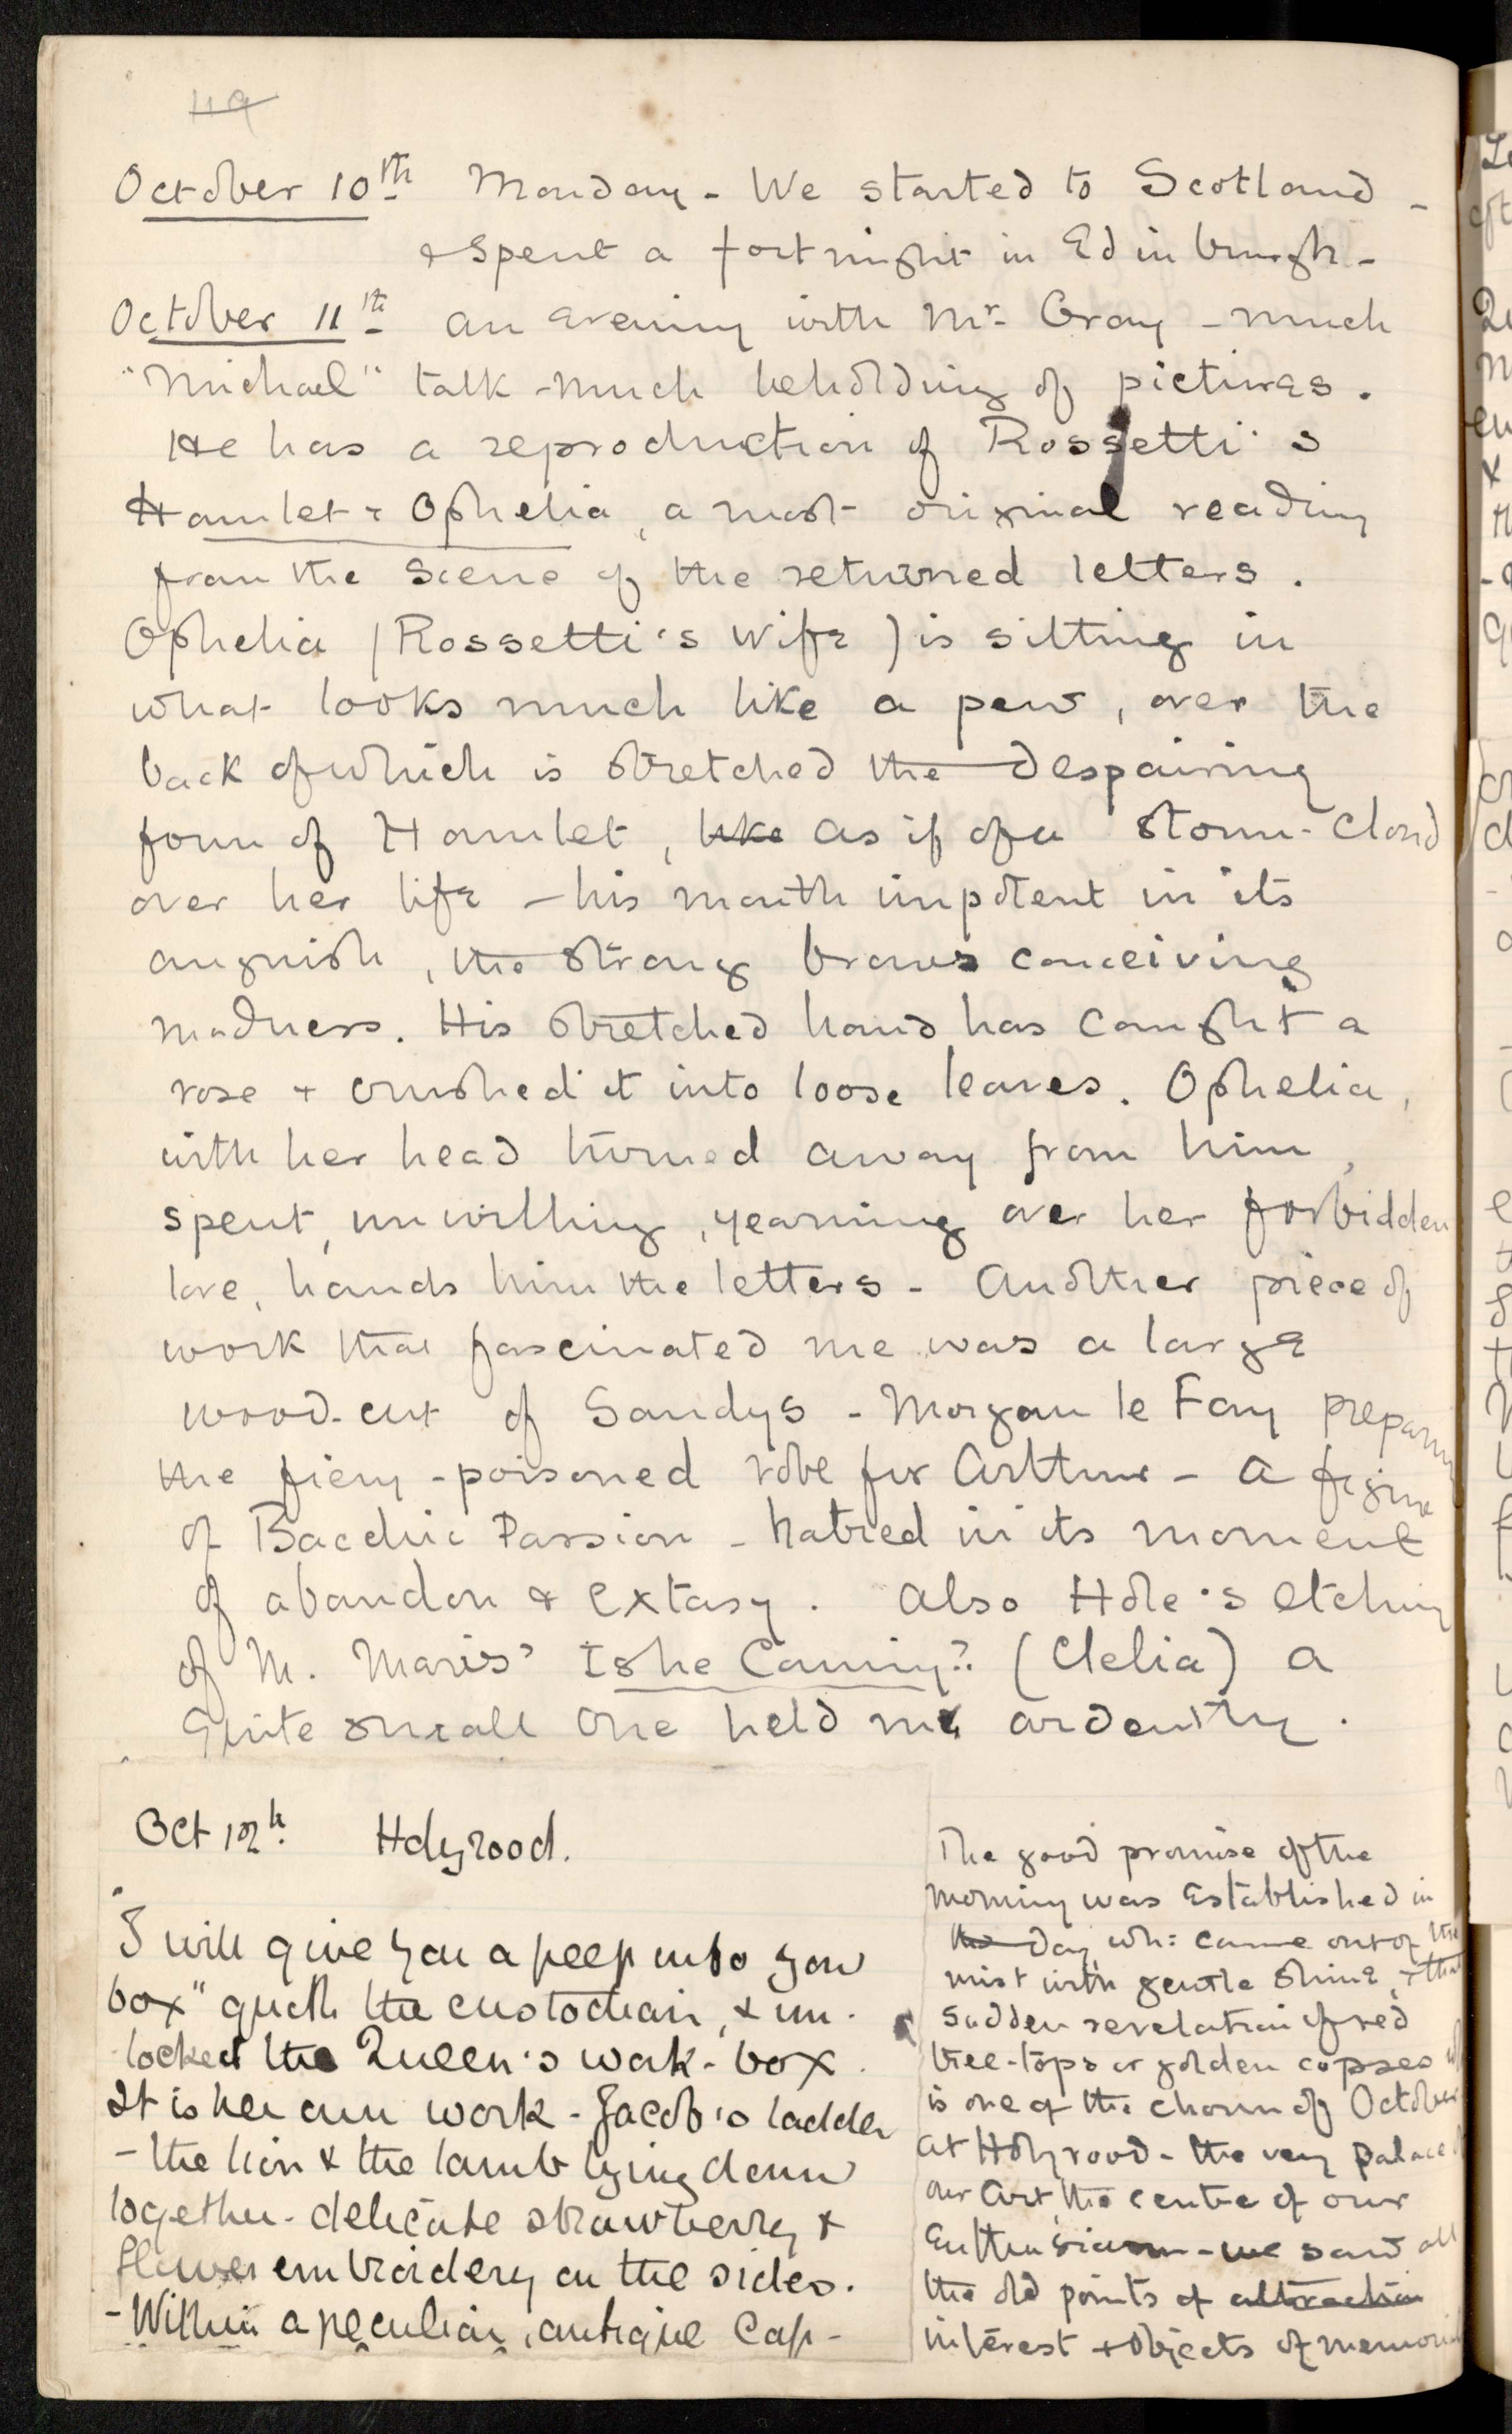 119
October 10th Monday - We started to Scotland -
& spent a fortnight in Edinburgh -
October 11th An evening with Mr. Gray - much
"Michael" talk - much beholding of pictures.
He has a reproduction of Rossetti's
Hamlet & Ophelia, a most original reading
from the scene of the returned letters.
Ophelia (Rossetti's wife) is sitting in
what looks much like a pew, over the
back of which is stretched the despairing
form of Hamlet, like as if of a storm-cloud
over her life - his mouth impotent in its
anguish, the strong brows conceiving
madness. His stretched hand has caught a
rose + crushed it into loose leaves. Ophelia,
with her head turned away from him,
spent, unwilling, yearning over her forbidden
love, hands him the letters - Another piece of
work that fascinated me was a large
wood-cut of Sandys - Morgan le Fay preparing
the fiery-poisoned robe for Arthur - a figure
of Bacchic Passion - hatred in its moment
of abandon & extasy. Also Hole's etching
of M. Maris' Is he Coming?. (Clelia) a
quite small one held me ardently.
Oct 12th. Holyrood.
"I will give you a peep into you
box" quoth the custodian, & un-
locked the Queen's work-box.
It is her own work - Jacob's ladder
- the lion & the lamb lying down
together - delicate strawberry &
flower embroidery on the sides.
- Within a peculiar, antique Cap-
The good promise of the
morning was established in
the day wh: came out of the
mist with gentle shine, + that
sudden revelation of red
tree-tops or golden copses
is one of the charm of October
At Holyrood - the very palace
our Art, the centre of our
Enthusiasm - we saw all
the old points of attraction
interest + objects of memorial